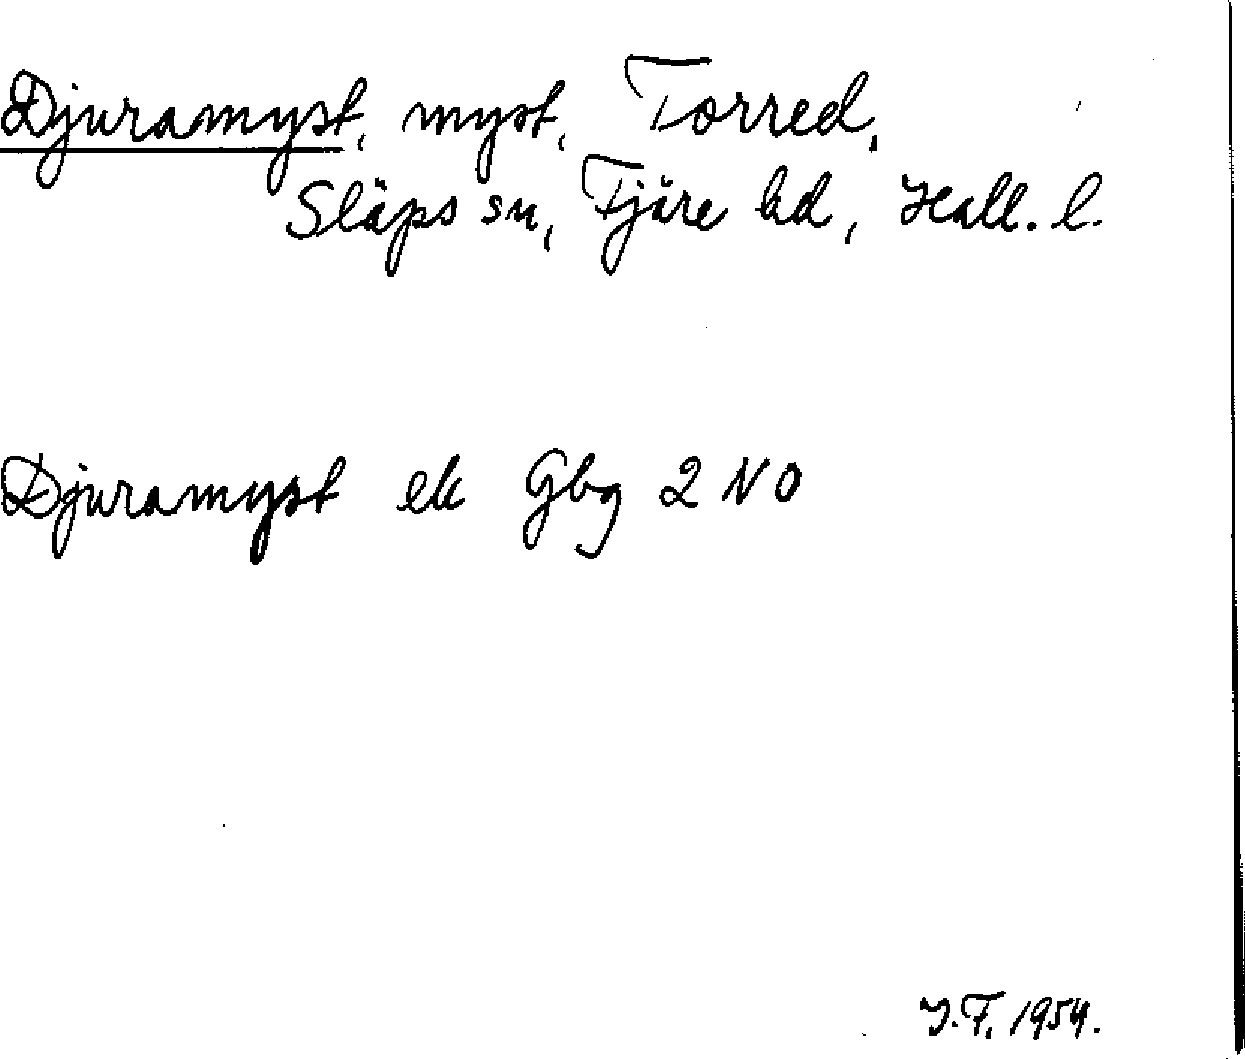 Djuramyst, myst, Torred,
Släps sn, Fjäre hd, Hall. l.
Djuramyst ek Gbg 2 NO
J.F. 1954.